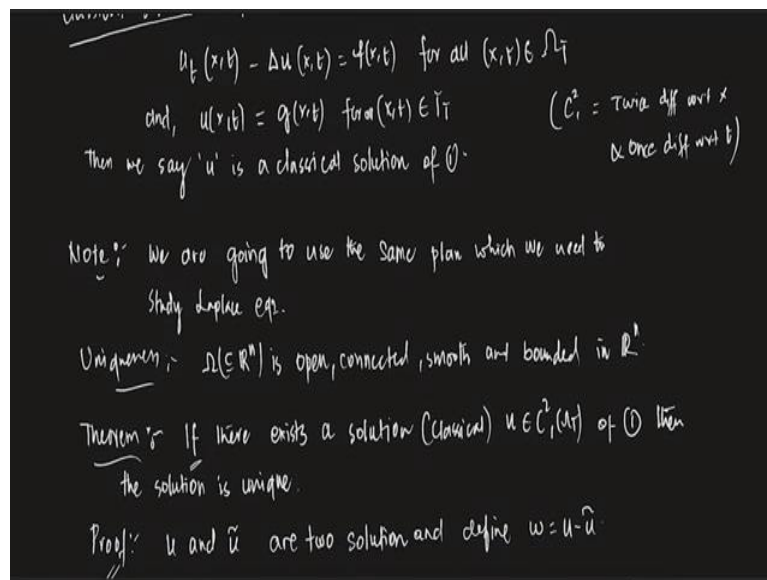 u_t (x,t) - Δu (x,t) = f(x,t) for all (x,t) ∈ Ω_T
and, u(x,t) = g(x,t) for (x,t) ∈ Γ_T
(C²₁ = Twice diff wrt x
& once diff wrt t)
Then we say 'u' is a classical solution of ①.
Note:- We are going to use the same plan which we used to
Study Laplace eqn.
Uniqueness:- Ω(⊆ ℝⁿ) is open, connected, smooth and bounded in ℝⁿ.
Theorem:- If there exists a solution (classical) u ∈ C²₁(Ω_T) of ① then
the solution is unique.
Proof:- u and ũ are two solution and define w = u - ũ.